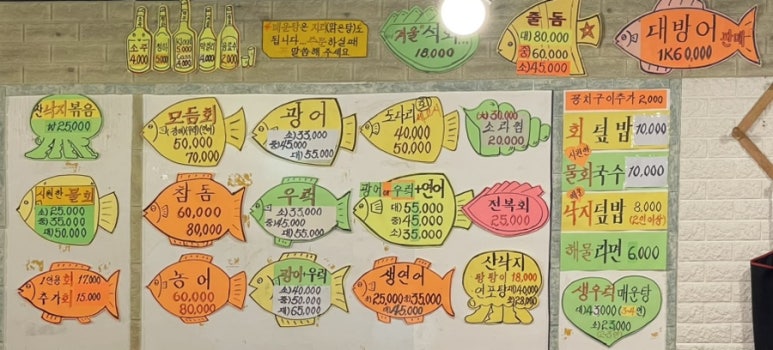 소주
4,000
청하
5,000
막걸리
4,000
음료수
2,000
매운탕은 지리(맑은탕)도
됩니다...주문하실때
말씀해 주세요
겨울 석화
18,000
돌돔
대) 80,000
중) 60,000
소) 45,000
대방어
판매
1K 60,000
산낙지볶음
25,000
모듬회
50,000
70,000
광어
소) 35,000
중) 45,000
대) 55,000
도다리
회
40,000
50,000
30,000
소라찜
20,000
시원한 물회
소) 25,000
중) 35,000
대) 50,000
참돔
60,000
80,000
우럭
소) 35,000
중) 45,000
대) 55,000
광어 or 우럭+연어
대) 55,000
중) 45,000
소) 35,000
전복회
25,000
1인용회 17,000
추가회 15,000
농어
60,000
80,000
광어+우럭
소) 40,000
중) 50,000
대) 65,000
생연어
소) 25,000 중) 35,000
대) 45,000
산낙지
탕탕이 18,000
연포탕 대) 40,000
소) 28,000
꽁치구이추가 2,000
회 덮밥 10,000
시원한
물회국수 10,000
매콤
낙지덮밥 8,000
(2인이상)
해물라면 6,000
생우럭매운탕
대) 43,000 (3~4인)
소) 23,000